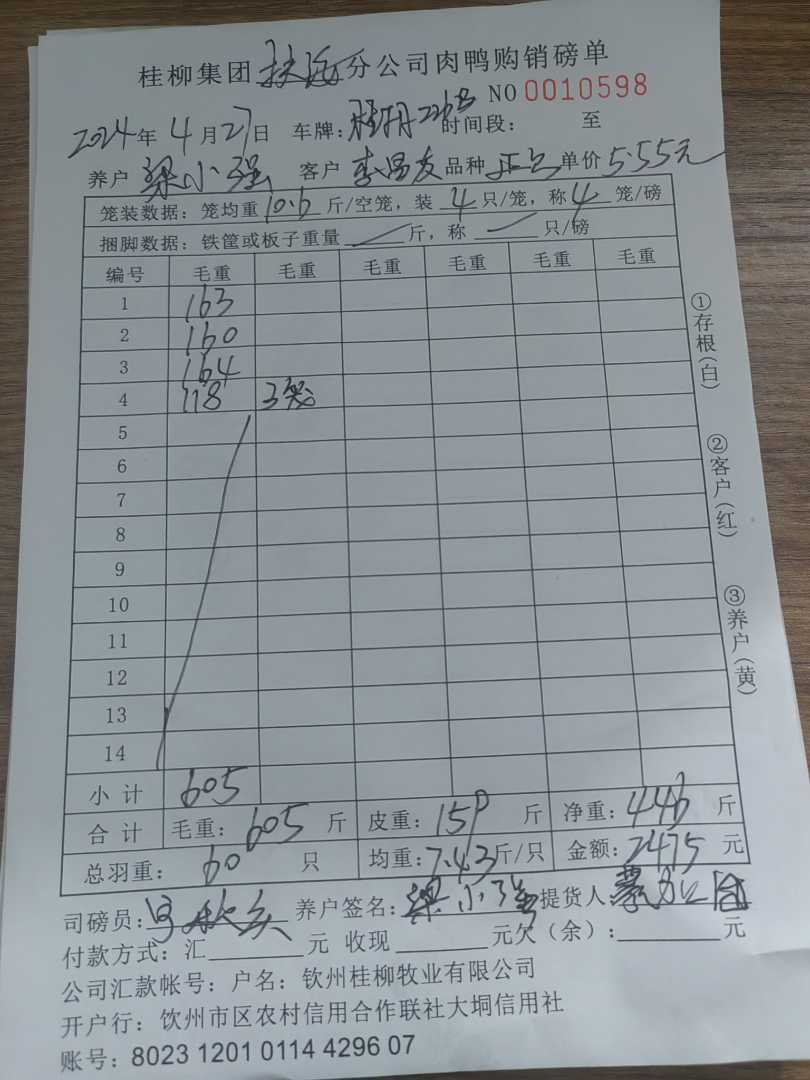 桂柳集团扶绥分公司肉鸭购销磅单
NO 0010598
2024年4月27日 车牌: 时间段: 至
养户 梁小强 客户 李昌友 品种 单价 5.55元
笼装数据:笼均重10.6斤/空笼,装4只/笼,称4笼/磅
捆脚数据:铁筐或板子重量 斤,称 只/磅
编号 毛重 毛重 毛重 毛重 毛重 毛重
1 163
2 160
3 164
4 118 3笼
5
6
7
8
9
10
11
12
13
14
小计 605
合计 毛重:605斤 皮重:159斤 净重:446斤
总羽重:60只 均重:7.43斤/只 金额:2475元
①存根(白)
②客户(红)
③养户(黄)
司磅员: 养户签名:梁小强 提货人:
付款方式:汇 元 收现 元欠(余): 元
公司汇款帐号:户名:钦州桂柳牧业有限公司
开户行:饮州市区农村信用合作联社大垌信用社
账号:8023 1201 0114 4296 07